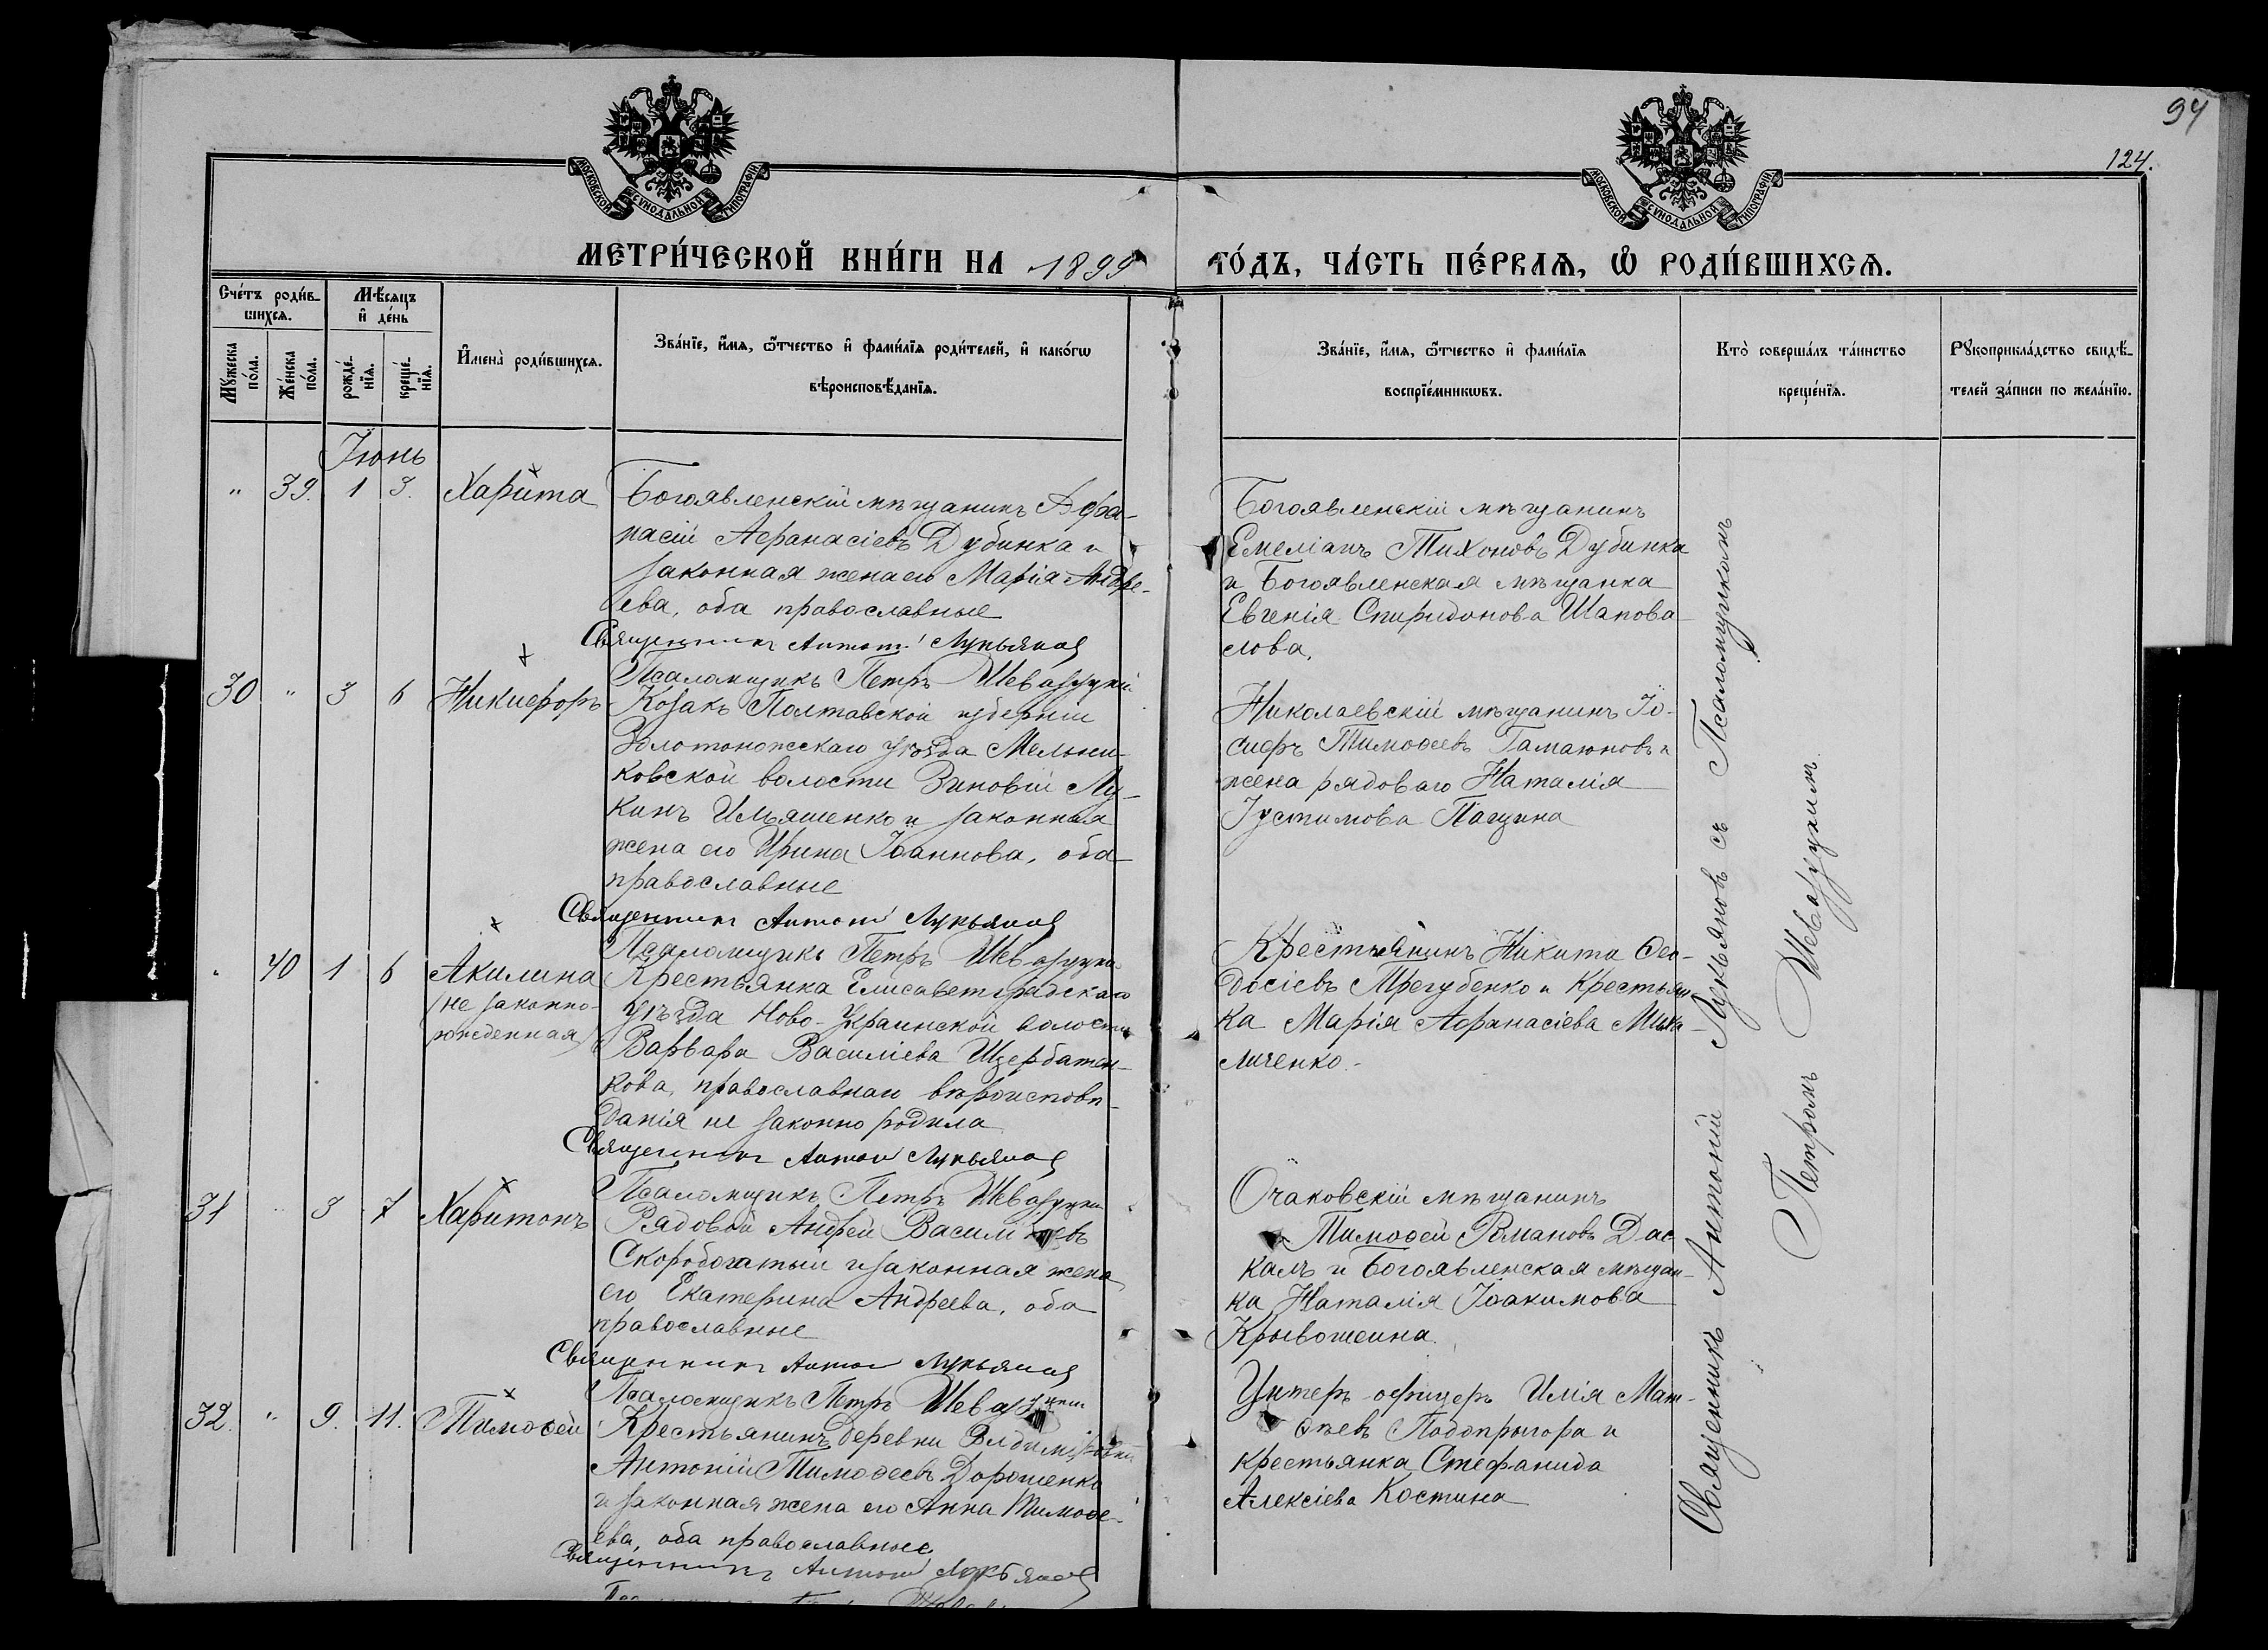 94
124.
МОСКОВСКОЙ СѴНОДАЛЬНОЙ ТИПОГРАФІИ
МОСКОВСКОЙ СѴНОДАЛЬНОЙ ТИПОГРАФІИ
МЕТРИ́ЧЕСКОЙ КНИ́ГИ НА 1899 ГО́ДЪ, ЧА́СТЬ ПЕ́РВАѦ, Ѡ РОДИ́ВШИХСѦ.
Сче́тъ роди́в-
шихсѧ.
Мѣ́сѧцъ
и҆ де́нь
Мꙋ́жеска
по́ла.
Же́нска
по́ла.
рожде́-
нїѧ.
креще́-
нїѧ.
И҆мена̀ роди́вшихсѧ.
Зва́нїе, и҆́мѧ, ѻ҆́тчество и҆ фами́лїѧ роди́телей, и҆ како́гѡ
вѣроисповѣ́данїѧ.
Зва́нїе, и҆́мѧ, ѻ҆́тчество и҆ фами́лїѧ
воспрїе́мникѡвъ.
Кто̀ соверша́лъ та́инство
креще́нїѧ.
Рꙋкоприкла́дство свидѣ́-
телей за́писи по жела́нїю.
Іюнь
" 39. 1 3. Харита
Богоявленскій мѣщанинъ Афа-
насій Афанасіевъ Дубинка и
законная жена его Марія Андре-
ева, оба православные
Священникъ Антоній Лукьянов
Псаломщикъ Петръ Шевазуцкій
Богоявленскій мѣщанинъ
Емеліанъ Тихоновъ Дубинка
и Богоявленская мѣщанка
Евгенія Спиридонова Шапова-
лова.
30 " 3 6 Никифоръ
Козакъ Полтавской губерніи
Золотоножскаго уѣзда Мельни-
ковской волости Зиновій Лу-
кинъ Ильяшенко и законная
жена его Ирина Іоаннова, оба
православные
Священникъ Антоній Лукьянов
Псаломщикъ Петръ Шевазуцкій
Николаевскій мѣщанинъ Іо-
сифъ Тимоѳеевъ Гамаюновъ и
жена рядоваго Наталія
Іустимова Пащина
" 40 1 6 Акилина
(не законно-
рожденная)
Крестьянка Елисаветградскаго
уѣзда Ново-Украинской волости
Варвара Василіева Щербатен-
кова, православнаго вѣроисповѣ-
данія не законно родила
Священникъ Антоній Лукьянов
Псаломщикъ Петръ Шевазуцкій
Крестьянинъ Никита Ѳео-
досіевъ Трегубенко и Крестьян-
ка Марія Афанасіева Миха-
личенко.-
31 " 3 7 Харитонъ
Рядовой Андрей Василіевъ
Скоробогатый и законная жена
его Екатерина Андреева, оба
православные
Священникъ Антоній Лукьянов
Псаломщикъ Петръ Шевазуцкій
Очаковскій мѣщанинъ
Тимоѳей Романовъ Дас
калъ и Богоявленская мѣщан-
ка Наталія Іоакимова
Крывошеина.
32. " 9. 11. Тимоѳей
Крестьянинъ деревни
Антоній Тимоѳеевъ Дорошенко
и законная жена его Анна Тимоѳе-
ева, оба православные
Священникъ Антоній Лукьянов
Унтеръ-офицеръ Илія Мат-
ѳѣевъ Подопрыгора и
крестьянка Стефанида
Алексіева Костина
Священникъ Антоній Лукьяновъ съ Псаломщикомъ
Петромъ Шевазуцкимъ